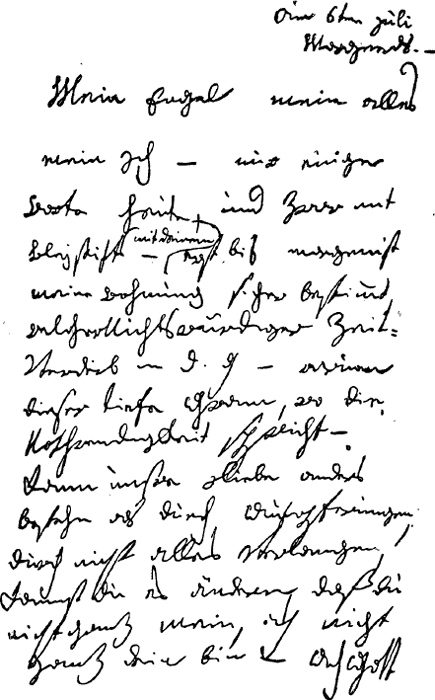 am 6ten Juli
Morgends. –
Mein Engel mein alles
mein Ich – nur einige
Worte heute, und zwar mit
Bleystift – (mit deinem) erst bis morgen ist
meine Wohnung sicher bestimmt,
welcher Nichtswürdiger Zeit-
Verderb in d. g – warum
dieser tiefe Gram, wo die
Nothwendigkeit spricht –
Kann unsre Liebe anders
bestehn als durch Aufopferungen,
durch nicht alles verlangen,
kannst du es ändern, daß du
nicht ganz mein, ich nicht
ganz dein bin – Ach Gott